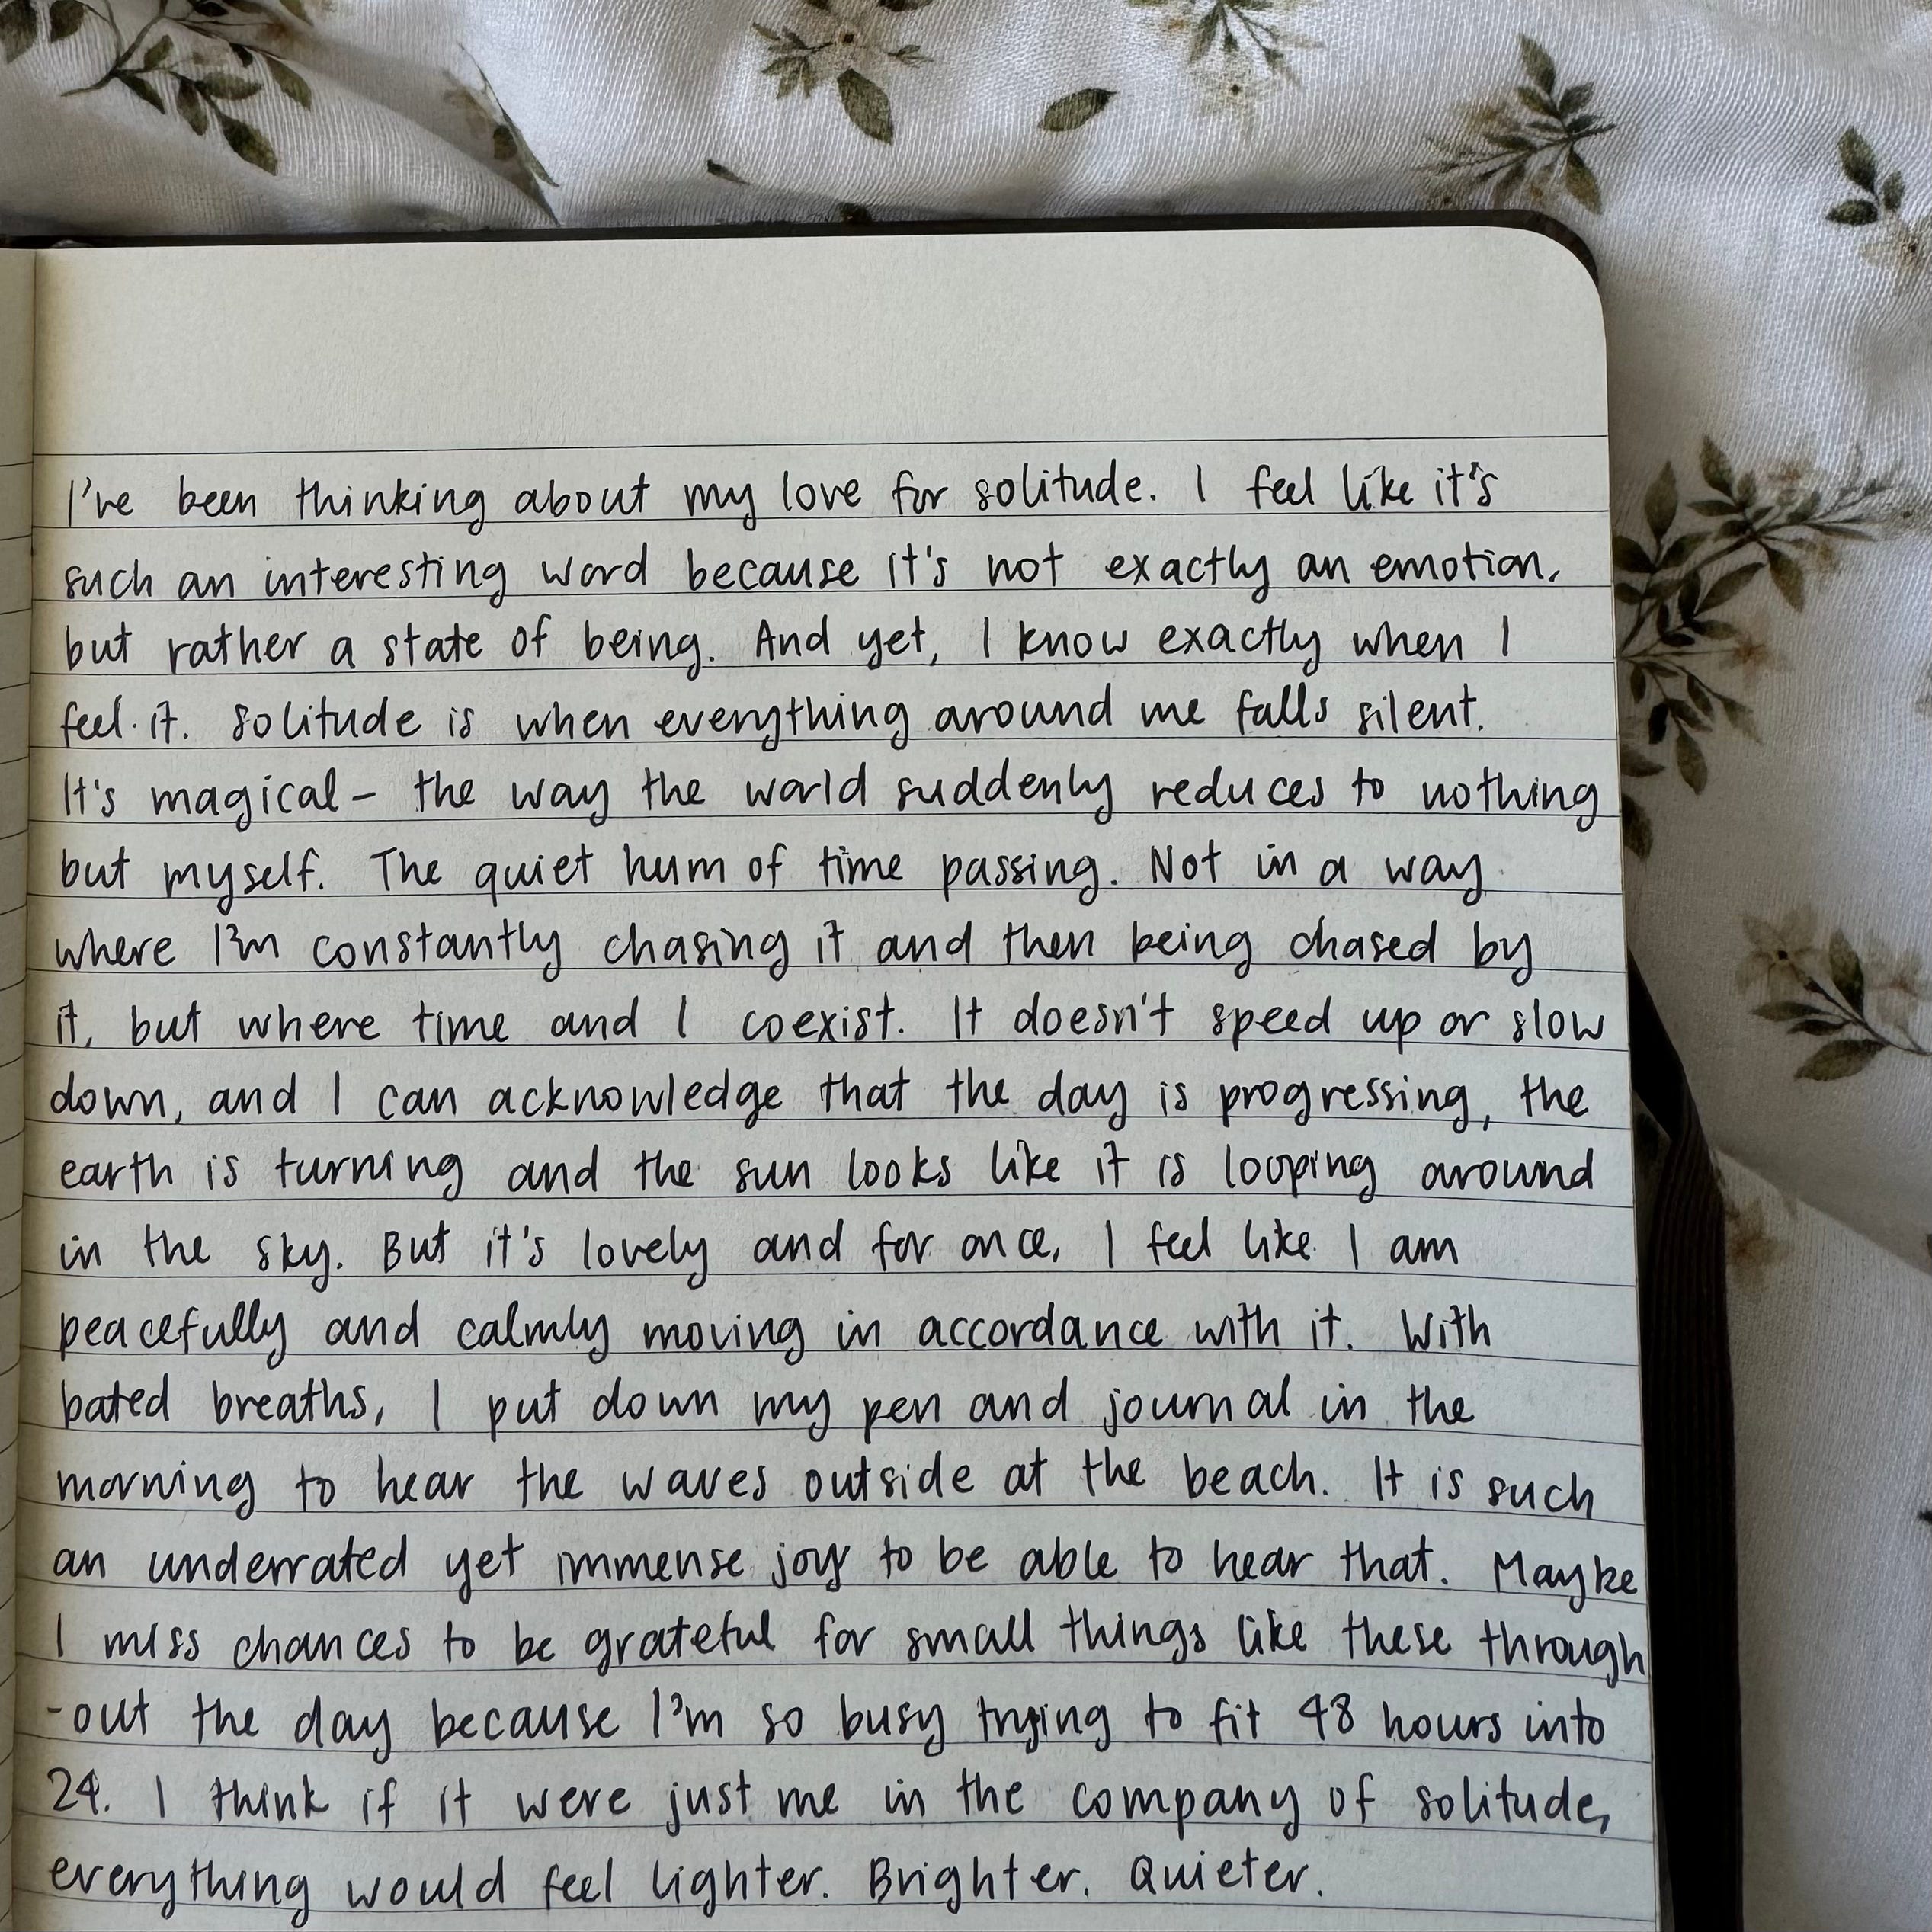 I've been thinking about my love for solitude. I feel like it's
such an interesting word because it's not exactly an emotion,
but rather a state of being. And yet, I know exactly when I
feel it. Solitude is when everything around me falls silent.
It's magical - the way the world suddenly reduces to nothing
but myself. The quiet hum of time passing. Not in a way
where I'm constantly chasing it and then being chased by
it, but where time and I coexist. It doesn't speed up or slow
down, and I can acknowledge that the day is progressing, the
earth is turning and the sun looks like it is looping around
in the sky. But it's lovely and for once, I feel like I am
peacefully and calmly moving in accordance with it. With
bated breaths, I put down my pen and journal in the
morning to hear the waves outside at the beach. It is such
an underrated yet immense joy to be able to hear that. Maybe
I miss chances to be grateful for small things like these through
-out the day because I'm so busy trying to fit 48 hours into
24. I think if it were just me in the company of solitude,
everything would feel lighter. Brighter. Quieter.